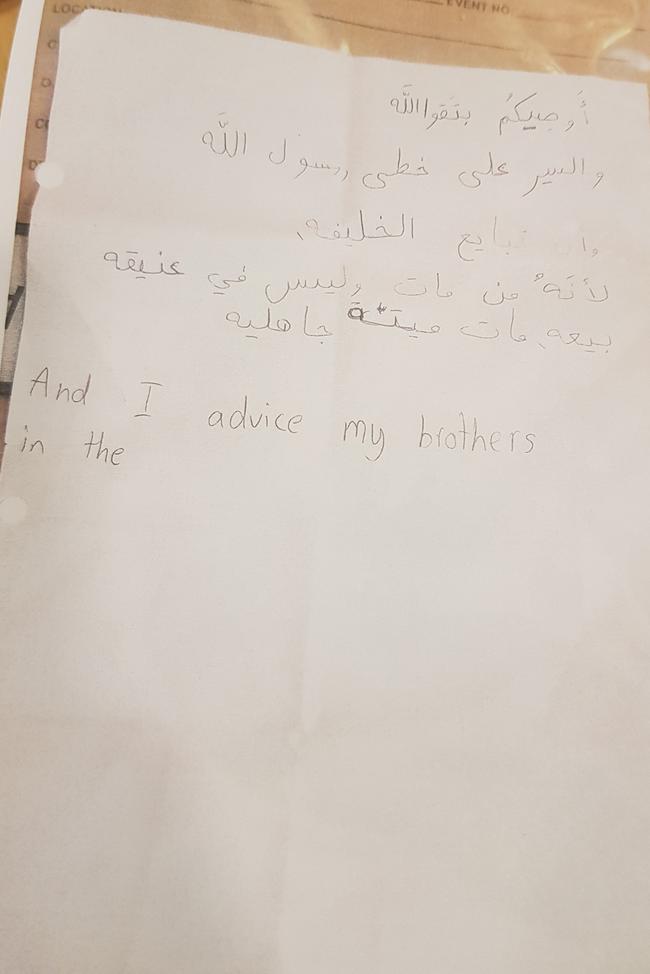 LOCATION
EVENT NO
أَوصِيكُم بتَقوا اللَّه
والسير على خطى رسول اللَّه
وان تبايع الخليفه،
لأنَهُ من مات وليس في عنيقه
بيعه، مات ميتة جاهليه
And I advice my brothers
in the